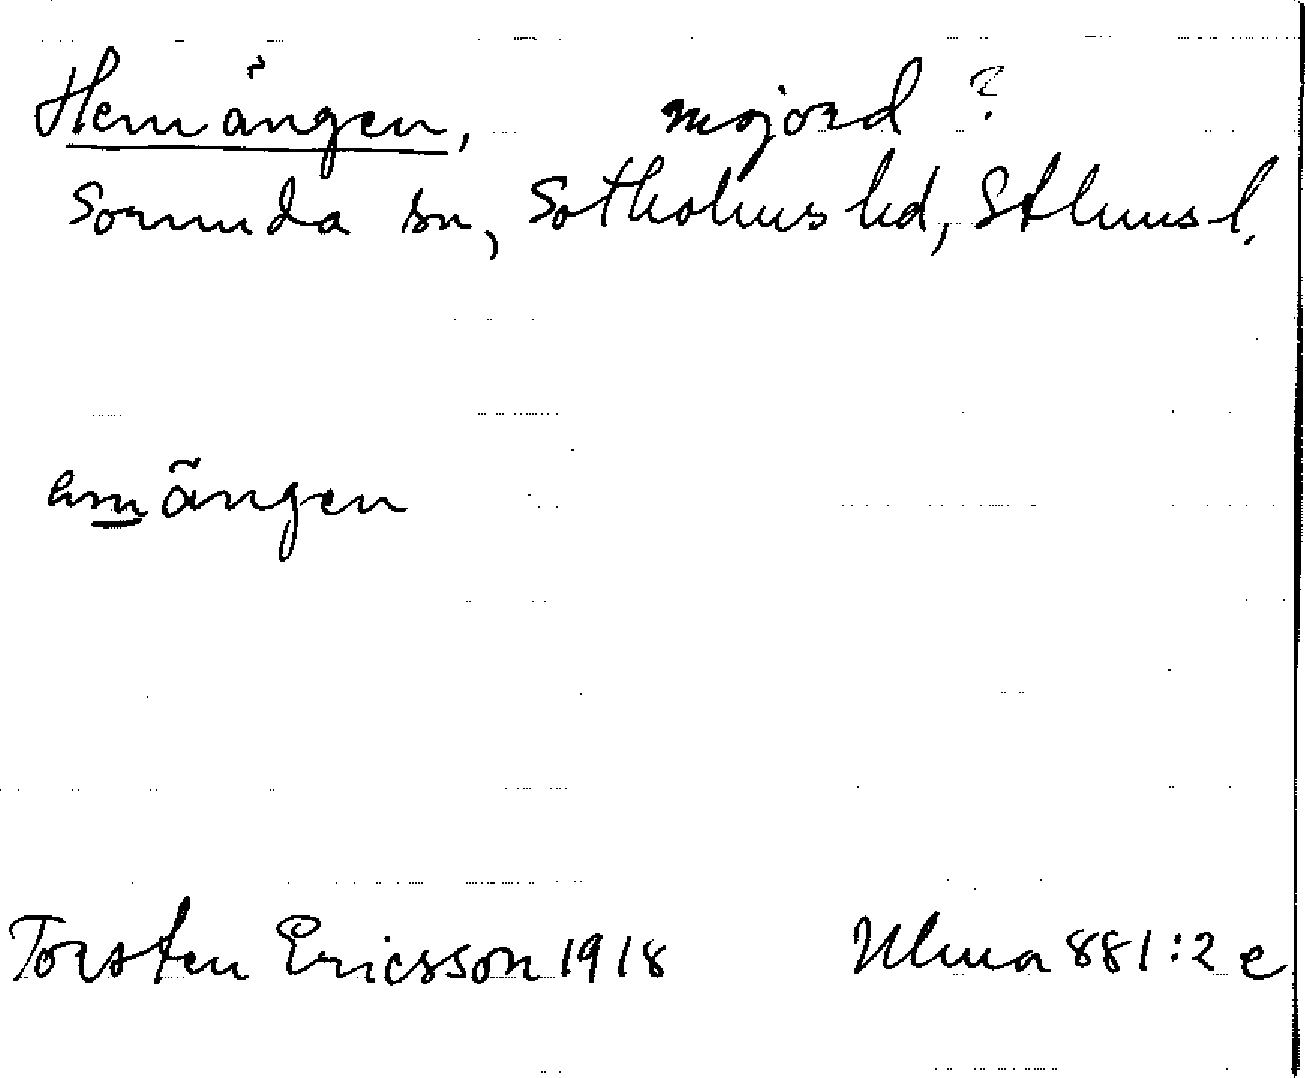 Hemängen, mojord ?
Sorunda sn, Sotholms hd, Sthms l.
emängen
Torsten Ericsson 1918 Ulma 881:2 e